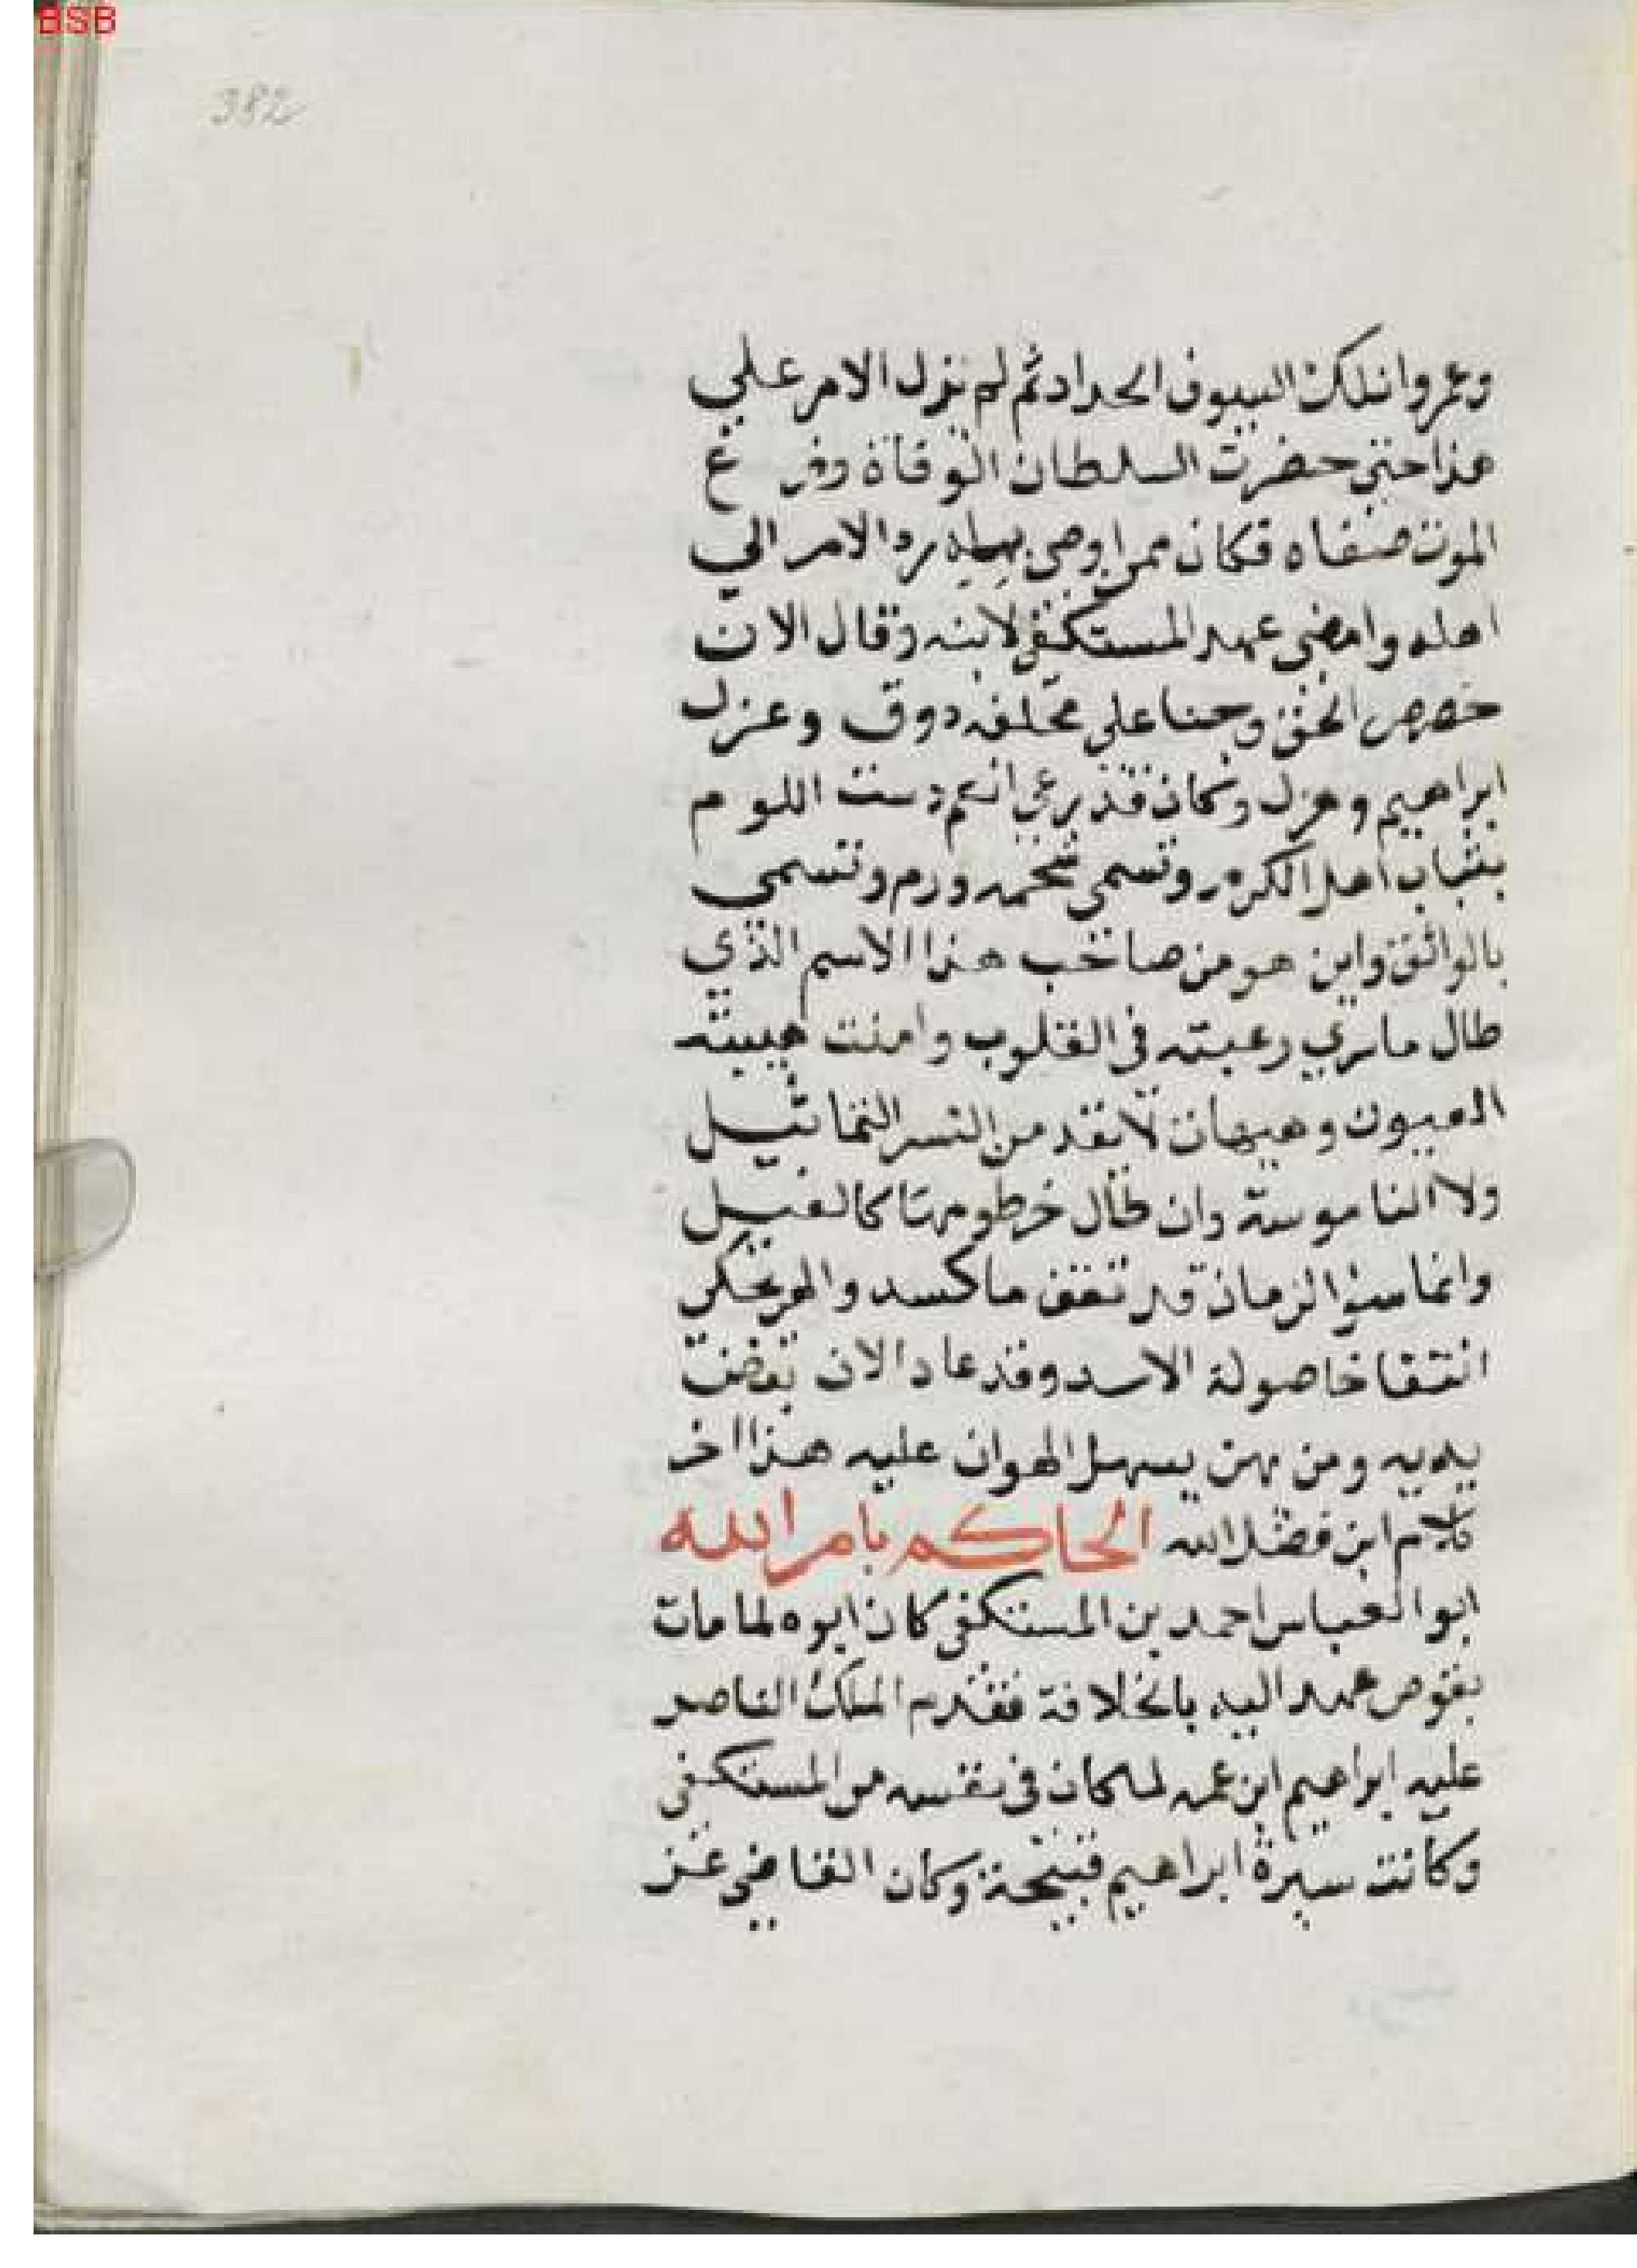 BSB
382
وعروا تلك السيوف الحداد ثم لم نزل الامر علي
هذا حتي حضرت السلطان الوفاة وفرغ
الموت صفاه فكان مما اوصي به رد الامر الي
اهله وامضي عهد المستكفي لابنه وقال الان
حصص الحق وحنا علي مخلفه دوق وعزل
ابراهيم وهزل وكان قد رعي انتم دست اللوم
بثياب اهل الكرم وتسمي شحمه ورم وتسمي
بالواثق واين هو من صاحب هذا الاسم الذي
طال ما سري رعبته في القلوب وامنت هيبته
العيون وهيهات لا تقد من النسر التماثيل
ولا الناموسة وان طال خرطومها كالفيل
وانما سوا الزمان قد تنفق ما كسد والهر يحكي
انتفاخا صولة الاسد وقد عاد الان بعضت
يديه ومن يهن يسهل الهوان عليه هذا اخر
كلام ابن فضل الله الحاكم بامر الله
ابو العباس احمد بن المستكفي كان ابوه لما مات
بقوص عهد اليه بالخلافة فقدم الملك الناصر
عليه ابراهيم ابن عمه لما كان في نفسه من المستكفي
وكانت سيرة ابراهيم قبيحة وكان القاضي عز